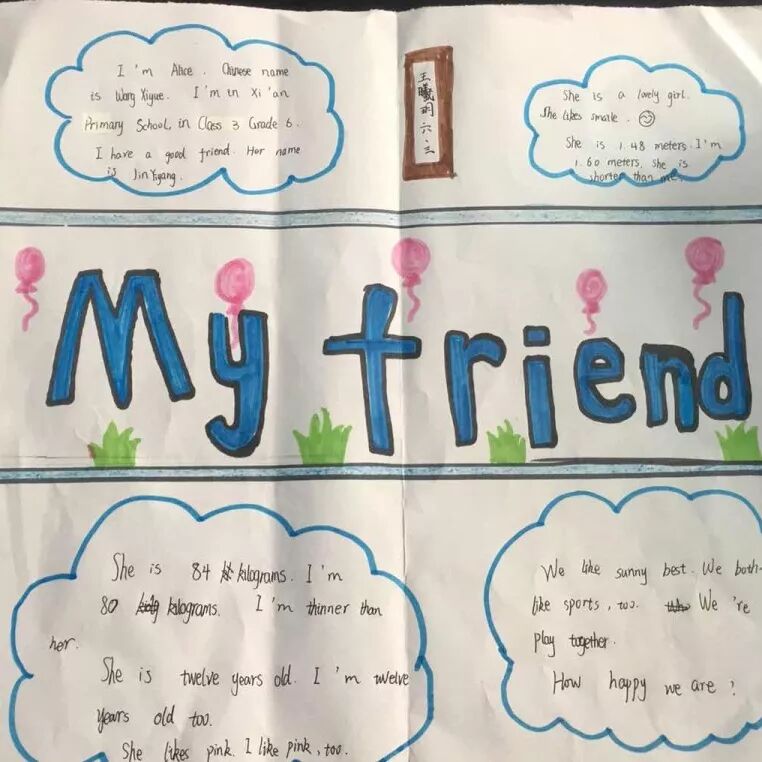 I'm Alice. Chinese name
is Wang Xiyue. I'm in Xi'an
Primary School, in Class 3 Grade 6.
I have a good friend. Her name
is Jin Yigang.
王曦玥六.三
She is a lovely girl.
She likes smale.
She is 1.48 meters. I'm
1.60 meters, she is
shorter than me.
My friend
She is 84 kilograms. I'm
80 kilograms. I'm thinner than
her.
She is twelve years old. I'm twelve
years old too.
She likes pink. I like pink, too.
We like sunny best. We both
like sports, too. We're
play together.
How happy we are?